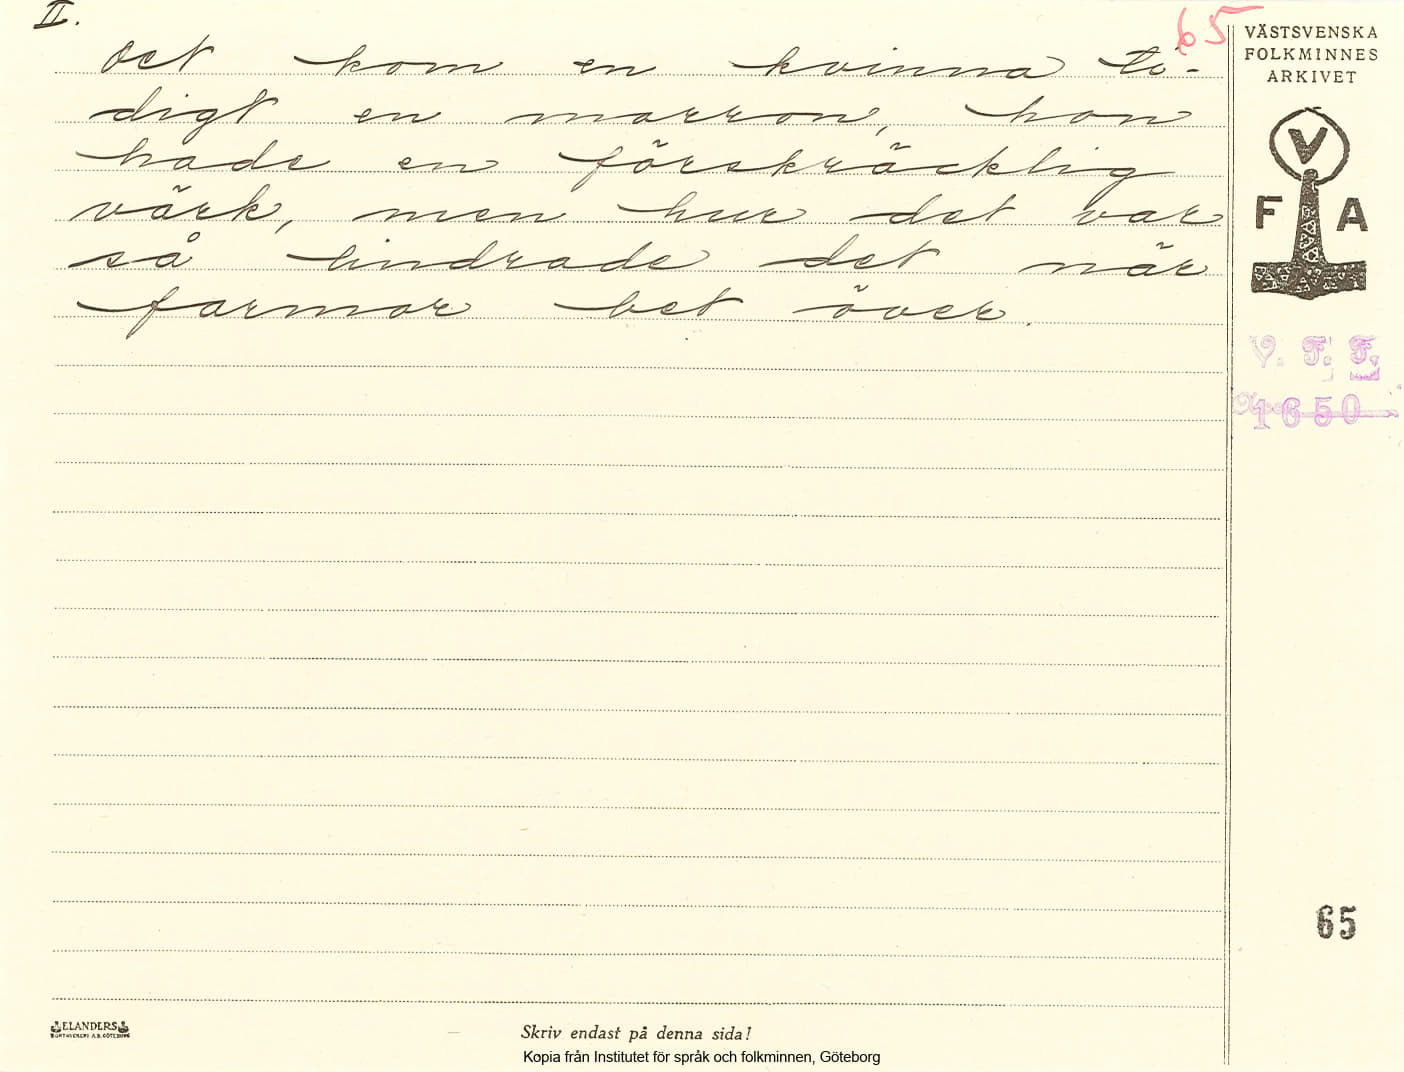 II.
65
det kom en kvinna ti-
digt en morron, hon
hade en förskräcklig
värk, men hur det var
så lindrade det när
farmor bet över.
VÄSTSVENSKA
FOLKMINNES
ARKIVET
V
F A
V. F. F.
1650
65
ELANDERS
Skriv endast på denna sida!
Kopia från Institutet för språk och folkminnen, Göteborg